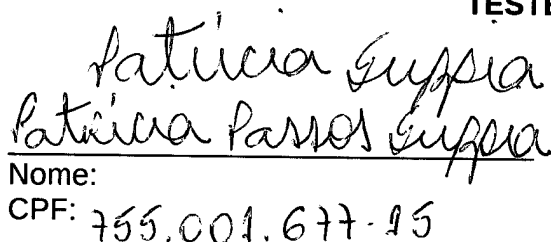 TESTE
Patrícia Suppia
Patrícia Passos Suppia
Nome:
CPF: 755.001.677-15